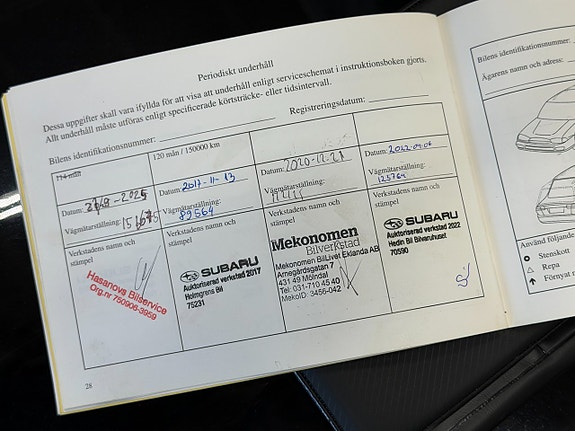 Periodiskt underhåll
Dessa uppgifter skall vara ifyllda för att visa att underhåll enligt serviceschemat i instruktionsboken gjorts.
Allt underhåll måste utföras enligt specificerade körtsträcke- eller tidsintervall.
Bilens identifikationsnummer:
Registreringsdatum:
Datum:
Vägmätarställning:
Verkstadens namn och
stämpel
Hasanovs Bilservice
Org.nr 750906-3959
120 mln / 150000 km
Datum: 2017-11-13
Vägmätarställning:
89564
Verkstadens namn och
stämpel
SUBARU
Auktoriserad verkstad 2017
Holmgrens Bil
75231
Datum: 2020-12-21
Vägmätarställning:
Verkstadens namn och
stämpel
Mekonomen
BilVerkstad
Mekonomen BilLivet Eklanda AB
Arnegårdsgatan 7
431 49 Mölndal
Tel: 031-710 45 40
MekoID: 3456-042
Datum: 2022-09-06
Vägmätarställning:
125764
Verkstadens namn och
stämpel
SUBARU
Auktoriserad verkstad 2022
Hedin Bil Bilvaruhuset
70590
28
Bilens identifikationsnummer:
Ägarens namn och adress:
Använd följande
Stenskott
Repa
Förnyat